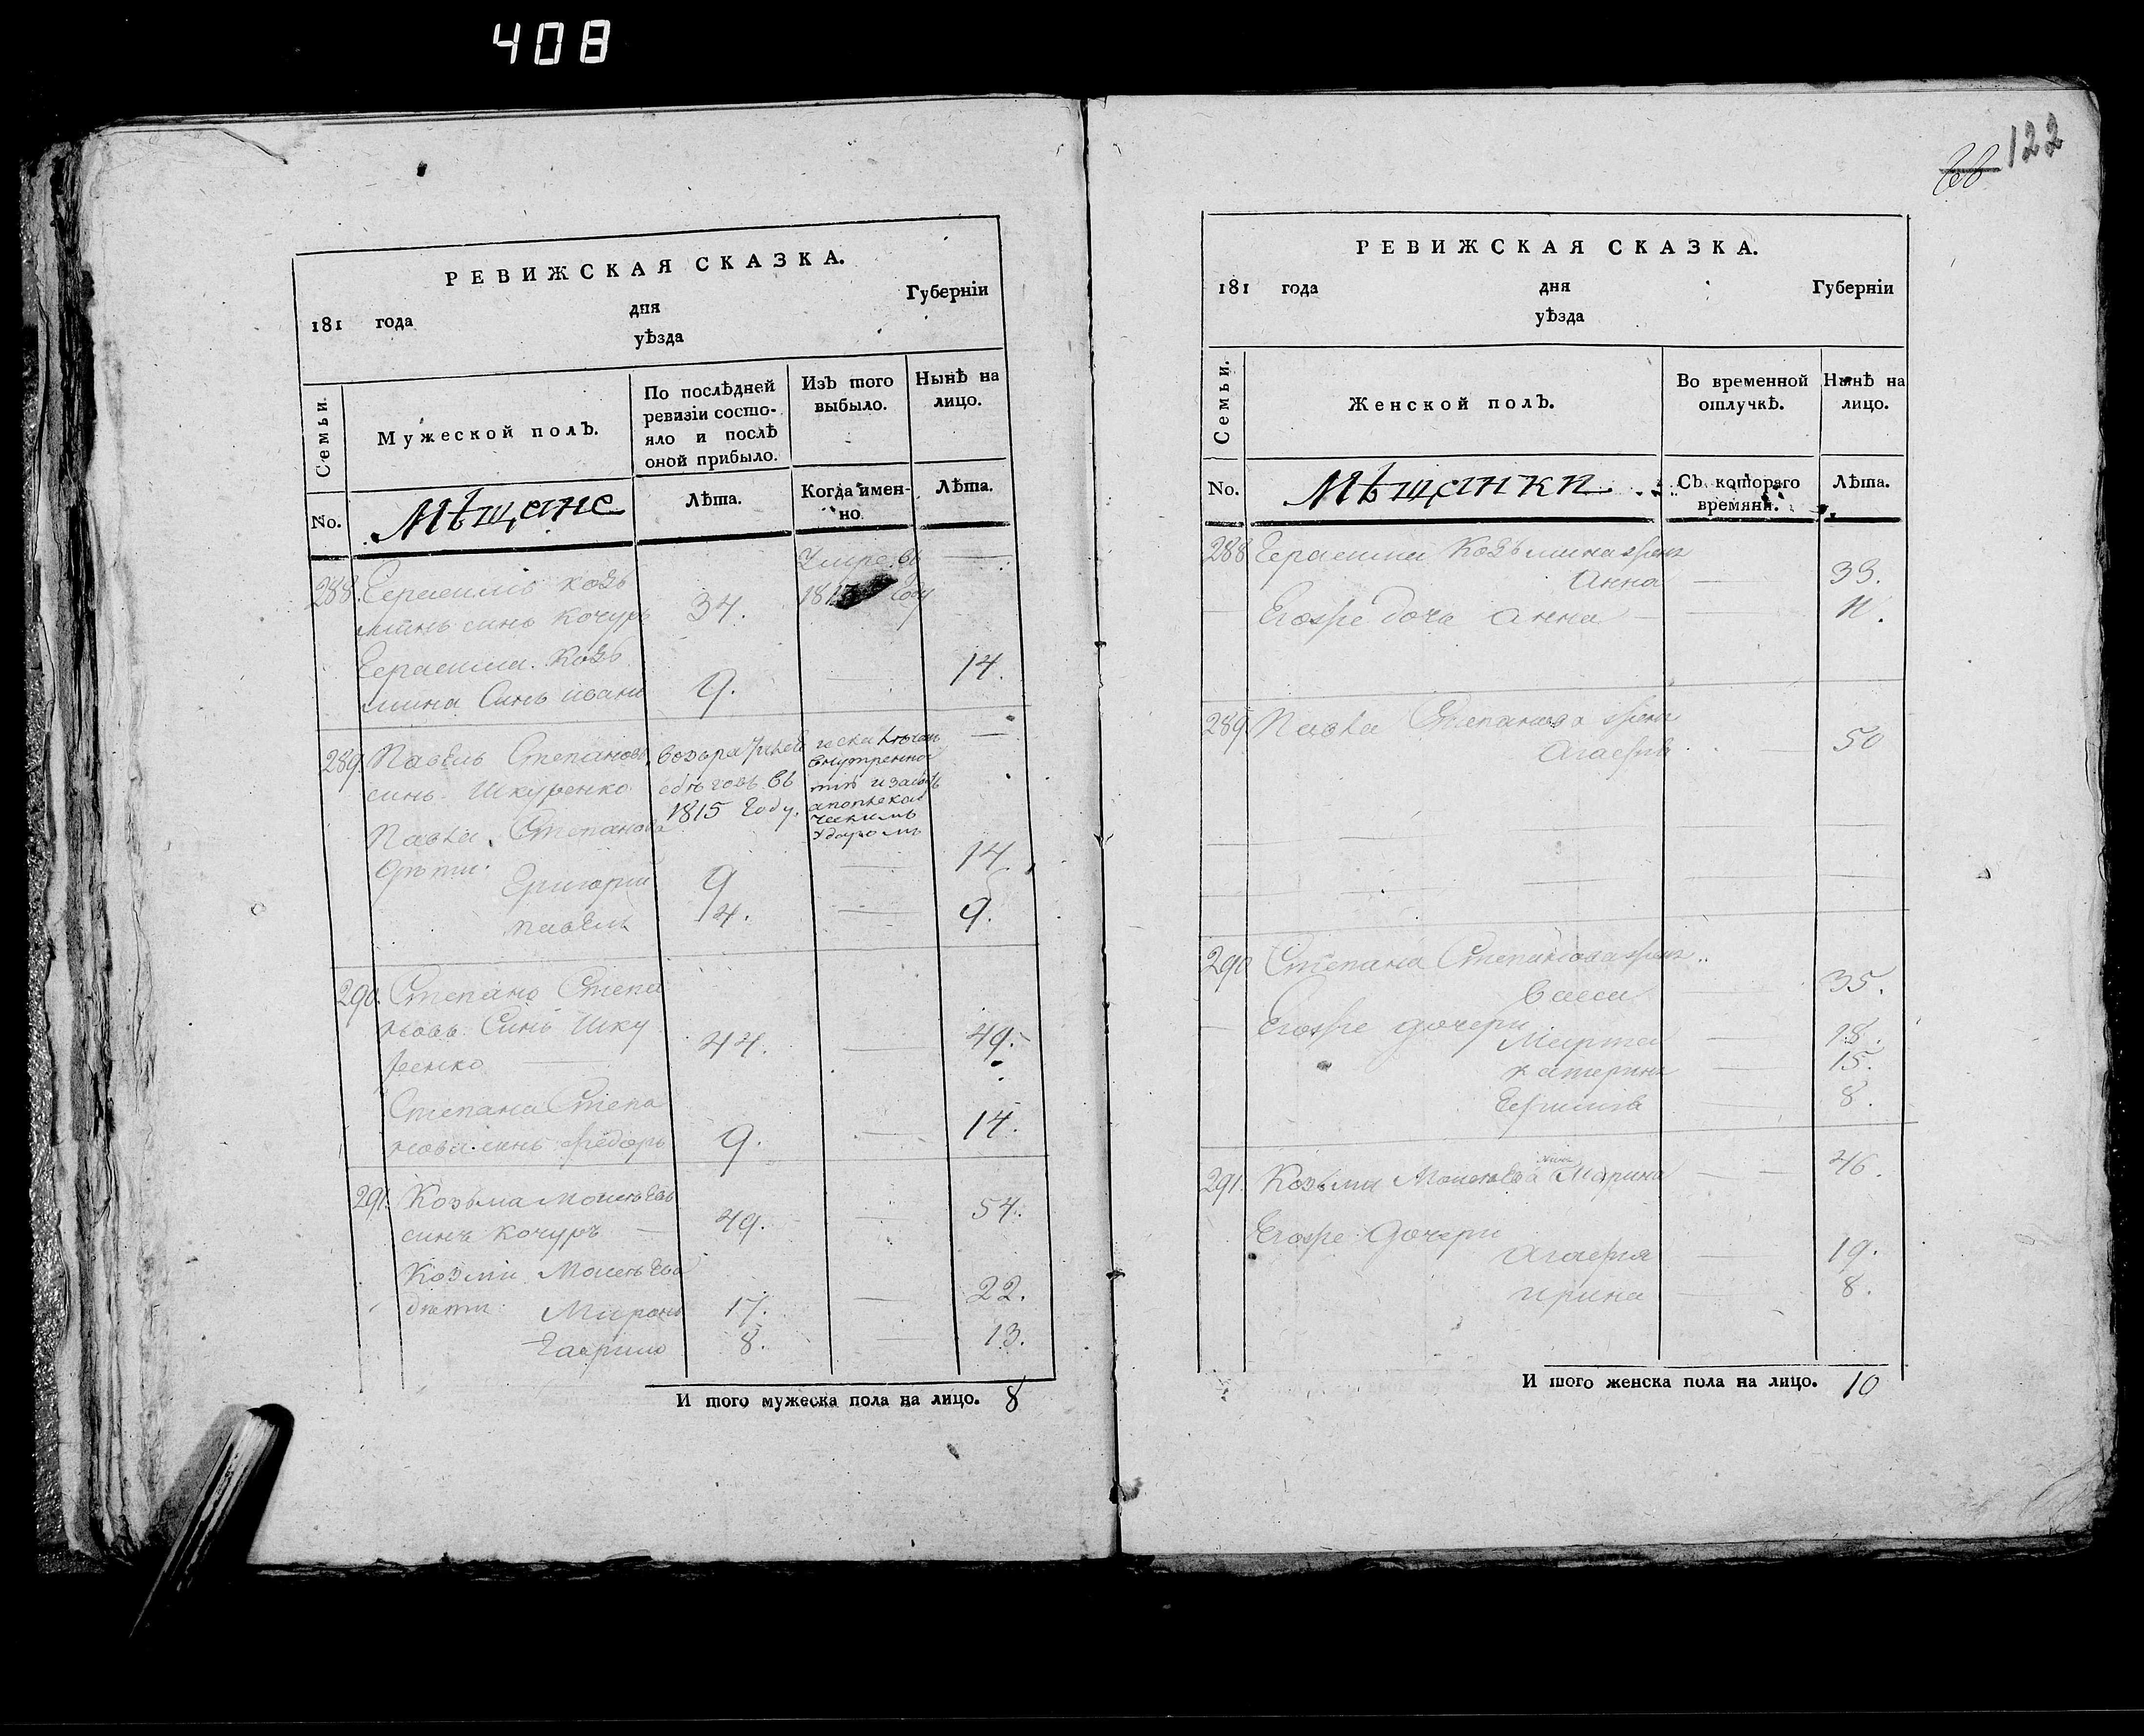 408
РЕВИЖСКАЯ СКАЗКА.
181 года дня Губерніи
уѣзда
Семьи.
Мужеской полъ.
По послѣдней ревизіи состо-
яло и послѣ
оной прибыло.
Изъ того
выбыло.
Нынѣ на
лицо.
No.
Мѣщане
Лѣта.
Когда имен-
но.
Лѣта.
288. Герасимъ козь
минъ синъ кочуръ 34.
1815 году
Герасима Козь
мина Синъ иванъ 9. 14.
289. Павелъ Степановъ
синъ Шкуренко въ
1815 Году.
ударомъ
Павла Степанова
дѣти
Григорий 9 14.
павелъ 4. 9.
290. Степанъ Степа
новъ Синъ Шку
ренко 44. 49.
Степана Степа
нова синъ федоръ 9. 14.
291. Козьма Моисѣевъ
синъ кочуръ 49. 54.
Козми Моисѣева
дѣти Миронъ 17. 22.
Гаврило 8. 13.
И того мужеска пола на лицо. 8
122
РЕВИЖСКАЯ СКАЗКА.
181 года дня Губерніи
уѣзда
Семьи.
Женской полъ.
Во временной
отлучкѣ.
Нынѣ на
лицо.
No.
Мѣщанки
Съ котораго
времяни.
Лѣта.
288 Герасима Козьмина жена
Анна 33.
Егоже дочь анна 11.
289 Павла Степанова жена
Агафия 50
290 Степана Степанова жена
Васса 35.
Егоже дочери
Марта 18.
катерина 15.
8.
291. Козьми Моисѣева жена Марина 46.
Егоже дочери
агафия 19.
ирина 8.
И того женска пола на лицо. 10